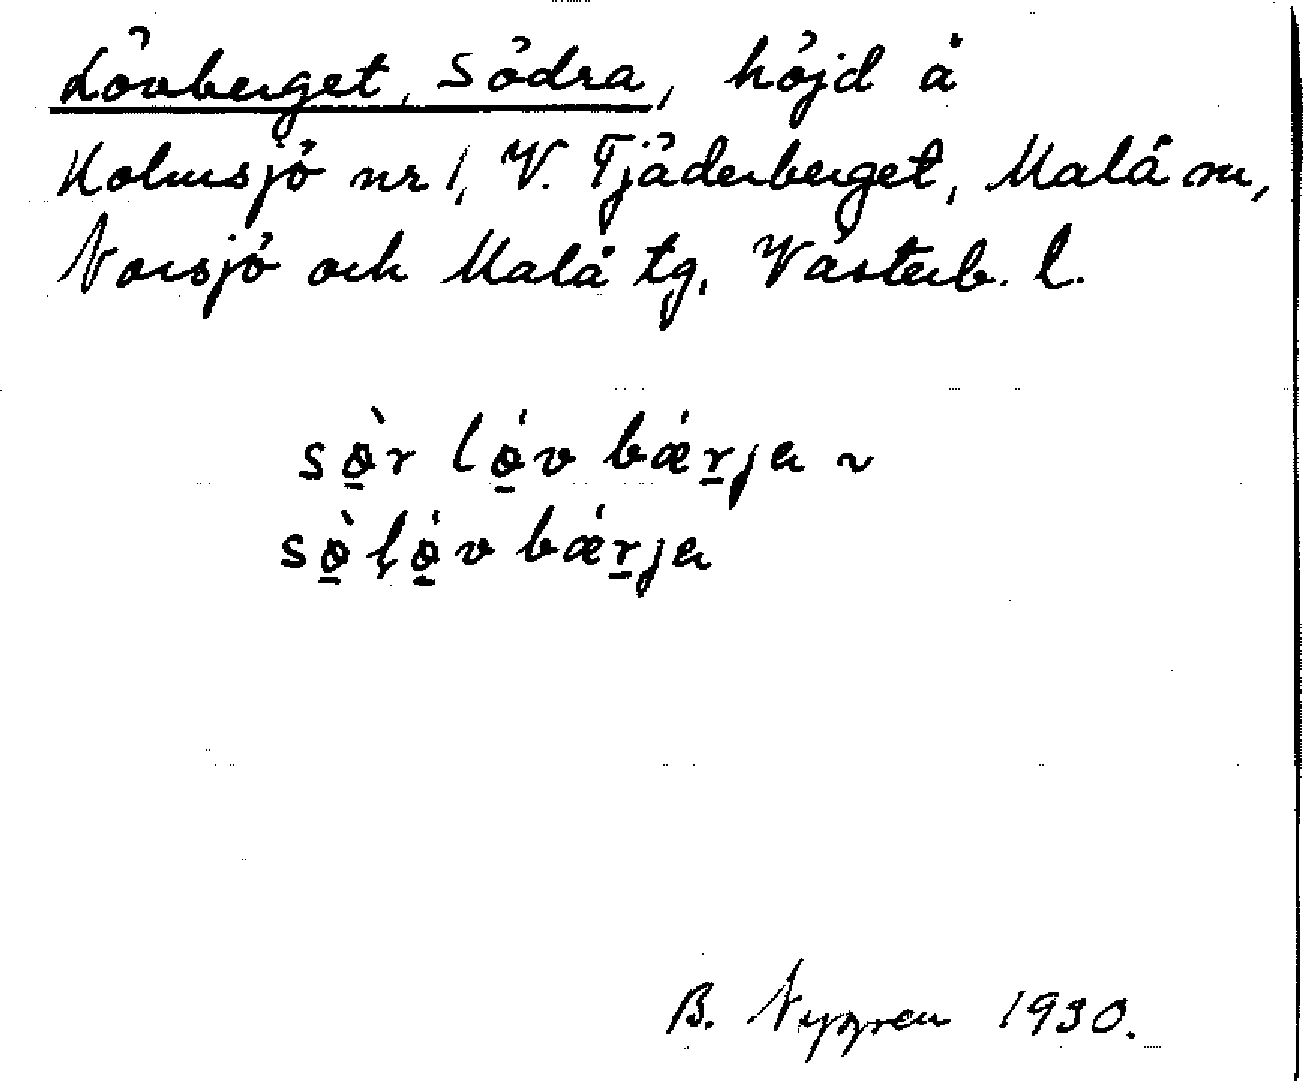 Lövberget, Södra, höjd å
Holmsjö nr 1, V. Tjäderberget, Malå sn,
Norsjö och Malå tg, Västerb. l.
sø̱̀r lǿ̱v bǽṟja ~
sø̱̀ḷǿ̱v bǽṟja
B. Nygren 1930.